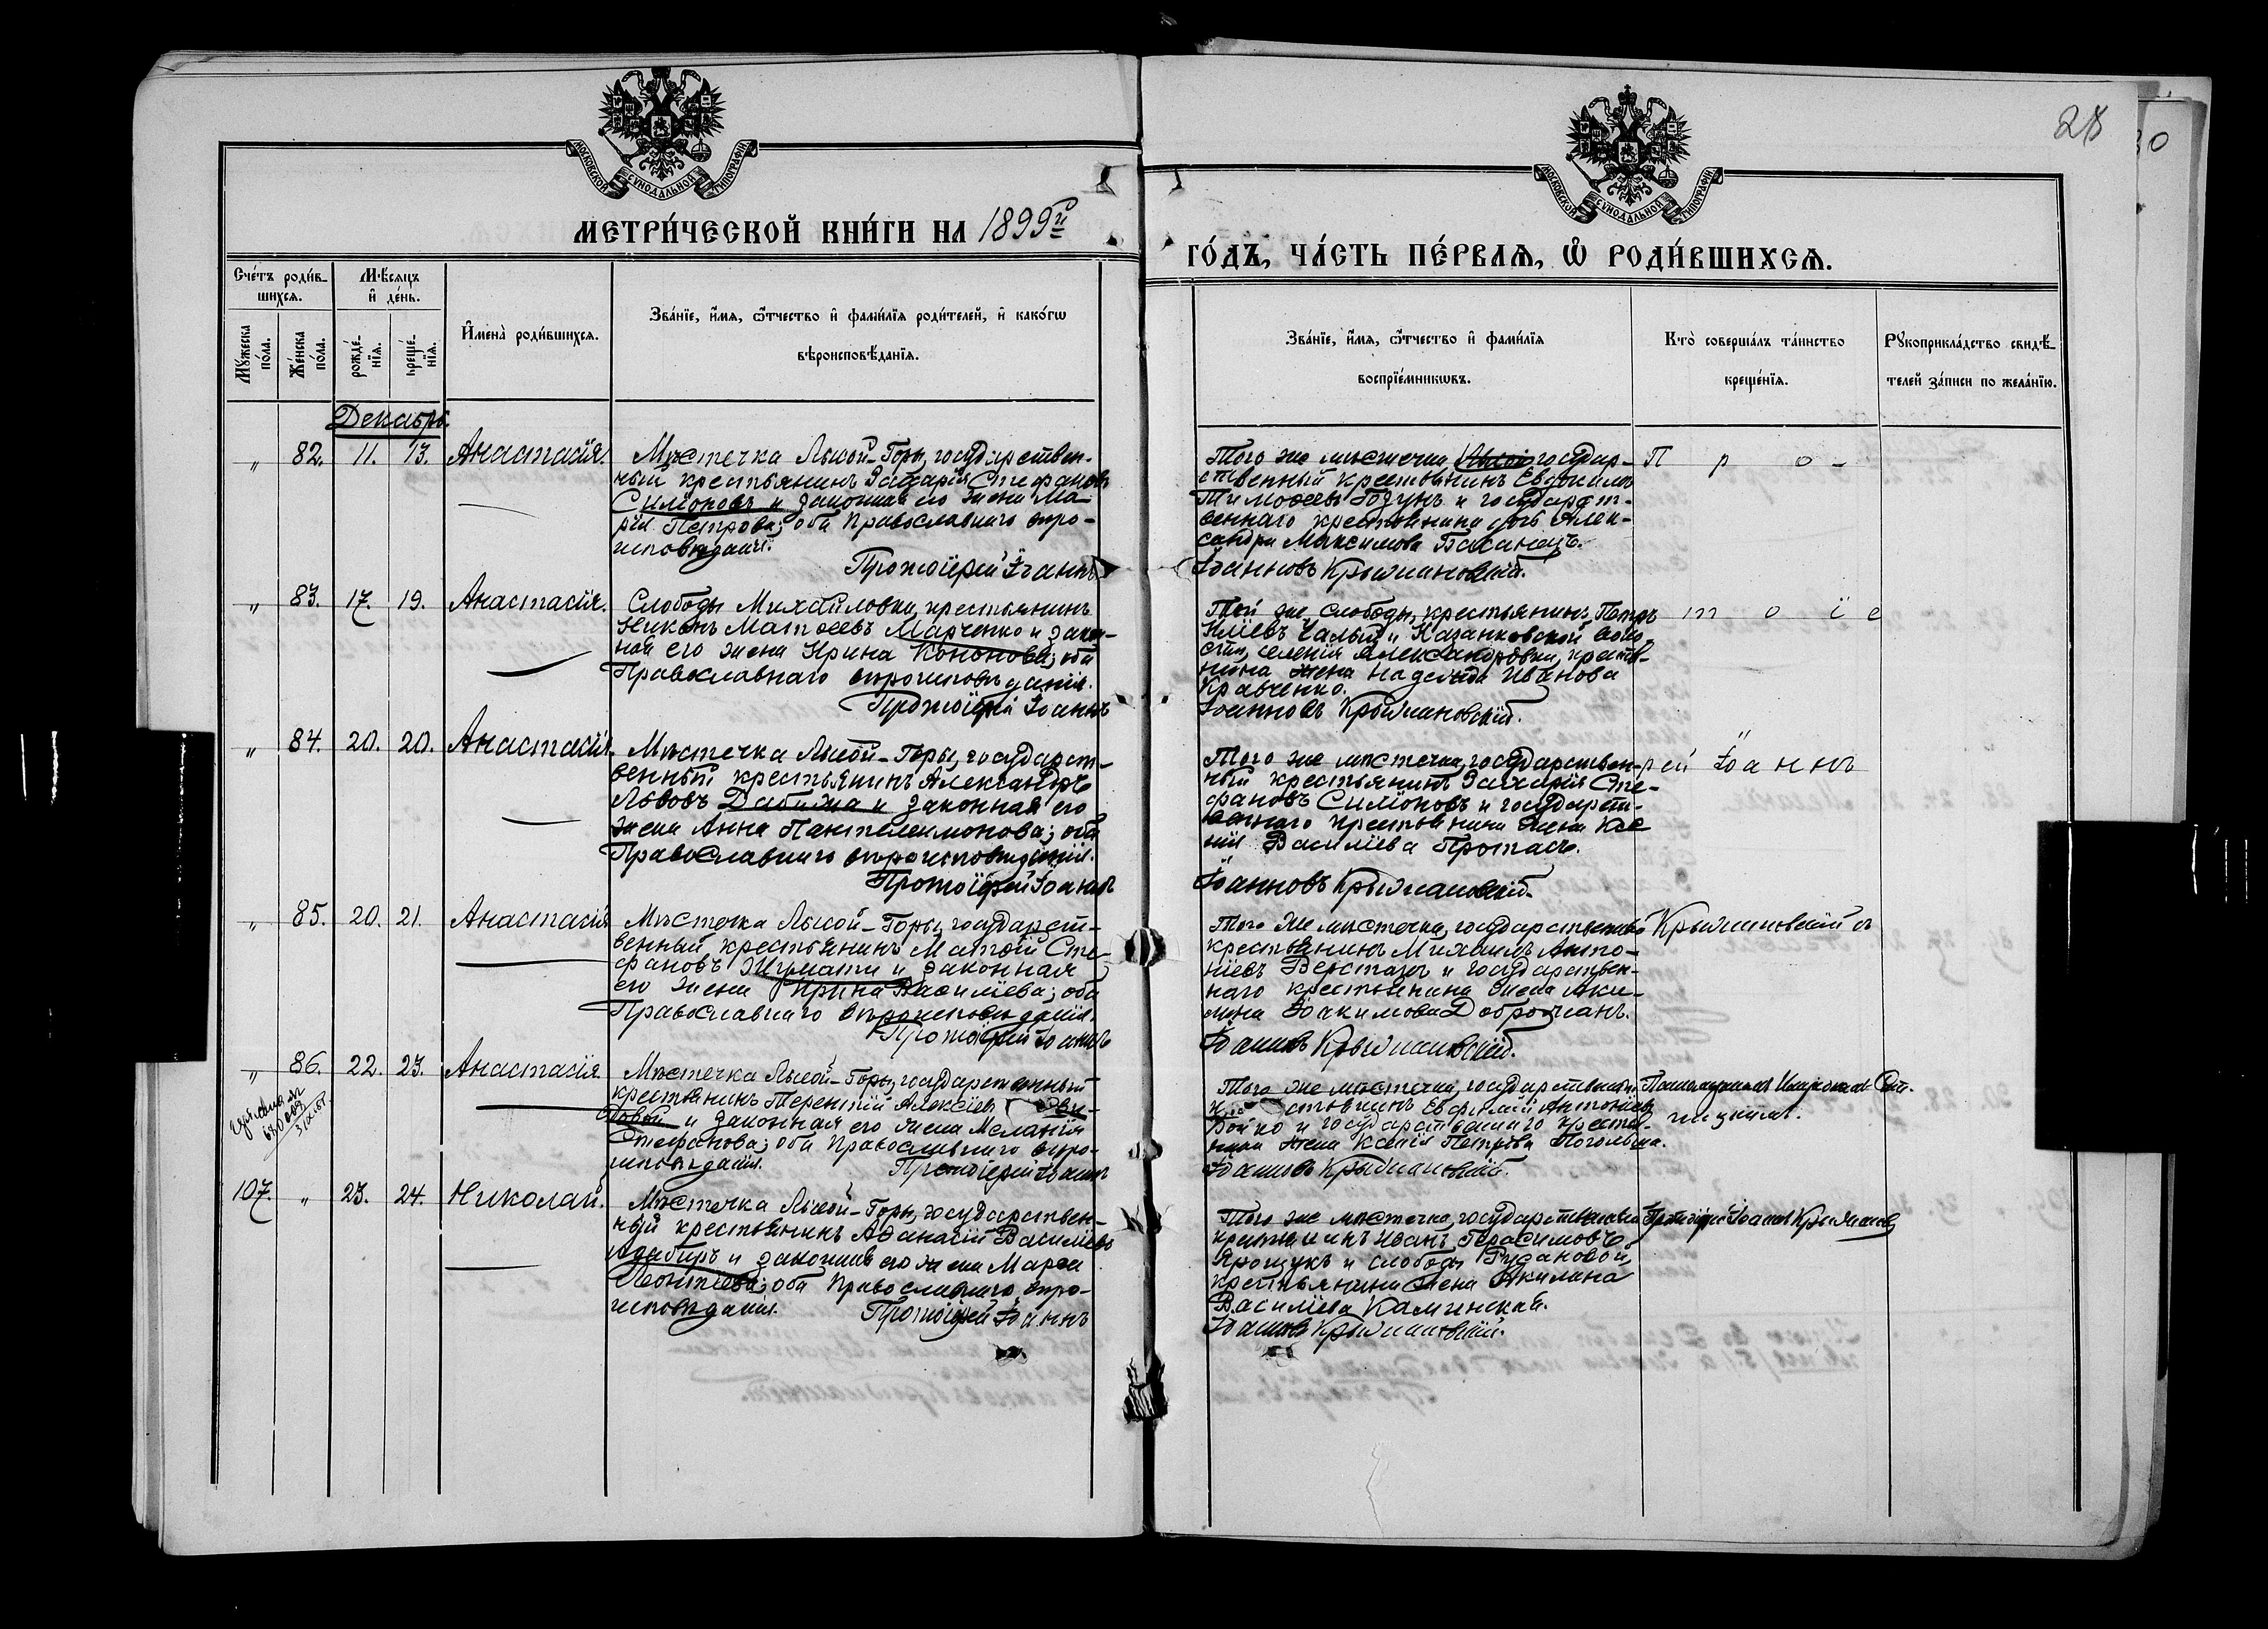 28
30
МОСКОВСКОЙ СѴНОДАЛЬНОЙ ТИПОГРАФІИ
МОСКОВСКОЙ СѴНОДАЛЬНОЙ ТИПОГРАФІИ
МЕТРИ́ЧЕСКОЙ КНИ́ГИ НА 1899й
ГО́ДЪ, ЧА́СТЬ ПЕ́РВАЯ, Ѡ РОДИ́ВШИХСЯ.
Сче́тъ роди́в-
шихся.
Мѣ́сяцъ
и де́нь.
Мꙋ́жеска по́ла.
Же́нска по́ла.
рожде́-нїя.
креще́-нїя.
Имена̀ роди́вшихся.
Зва́нїе, и́мя, ѻ́тчество и фами́лїя роди́телей, и како́гѡ
вѣроисповѣ́данїя.
Зва́нїе, и́мя, ѻ́тчество и фами́лїя
воспрїе́мникѡвъ.
Кто̀ соверша́лъ та́инство
креще́нїя.
Рꙋкоприкла́дство свидѣ́-
телей за́писи по жела́нїю.
Декабрь.
" 82. 11. 13. Анастасія.
Мѣстечка Лысой-Горы, государствен-
ный крестьянинъ Захарій Стефановъ
Симоновъ и законная его жена Ма-
рія Петрова; оба Православнаго веро-
исповеданія.
Протоіерей Іоаннъ
Того же местечка государ-
ственный крестьянинъ Евдокимъ
Тимофеевъ Годунъ и государст-
веннаго крестьянина дочь Алек-
сандра Максимова Баланецъ.
Іоанновъ Крыжановскій.
П р о -
" 83. 17. 19. Анастасія.
Слободы Михайловки, крестьянинъ
Никонъ Матѳеевъ Марченко и закон-
ная его жена Ирина Кононова; оба
Православнаго вероисповеданія.
Протоіерей Іоаннъ
Той же слободы, крестьянинъ Петръ
Иліевъ Чалый и Казанковской воло-
сти, селенія Александровки, кресть-
нина жена Надежда Иванова
Кравченко.
Іоанновъ Крыжановскій.
т о і е
" 84. 20. 20. Анастасія.
Мѣстечка Лысой-Горы, государст-
венный крестьянинъ Александръ
Львовъ Дабижа и законная его
жена Анна Пантелеимонова; оба
Православнаго вероисповеданія.
Протоіерей Іоаннъ
Того же местечка, государствен-
ный крестьянинъ Захарія Сте-
фановъ Симоновъ и государст-
веннаго крестьянина жена Ксе
нія Василіева Протасъ.
Іоанновъ Крыжановскій.
рей Іоаннъ
" 85. 20. 21. Анастасія
Мѣстечка Лысой-Горы, государст-
венный крестьянинъ Матѳій Сте-
фановъ и законная
его жена Ирина Василіева; оба
Православнаго вероисповеданія.
Протоіерей Іоаннъ
Того же местечка, государственный
крестьянинъ Михаилъ Анто-
ніевъ и государствен-
наго крестьянина жена Аки-
лина Іоакимова Доброжанъ.
Іоанновъ Крыжановскій.
Крыжановскій съ
" 86. 22. 23. Анастасія
Мѣстечка Лысой-Горы, государственный
крестьянинъ Терентій Алексіевъ
и законная его жена Меланія
Стефанова; оба Православнаго веро-
исповеданія. Протоіерей Іоаннъ
Того же местечка, государственный
Евфимій Антоніевъ
Бойко и государственнаго крестья-
нина жена Ксенія Петрова
Іоанновъ Крыжановскій.
107. " 23. 24. Николай.
Мѣстечка Лысой-Горы, государствен-
ный крестьянинъ Аѳанасій Василіевъ
и законная его жена Марѳа
Леонтіева; оба Православнаго веро-
исповеданія. Протоіерей Іоаннъ
Того же местечка, государственный
крестьянинъ Иванъ Герасимовъ
Ярощукъ и слободы
крестьянина жена Акилина
Василіева Каминская.
Іоанновъ Крыжановскій.
Протоіерей Іоаннъ Крыжановск